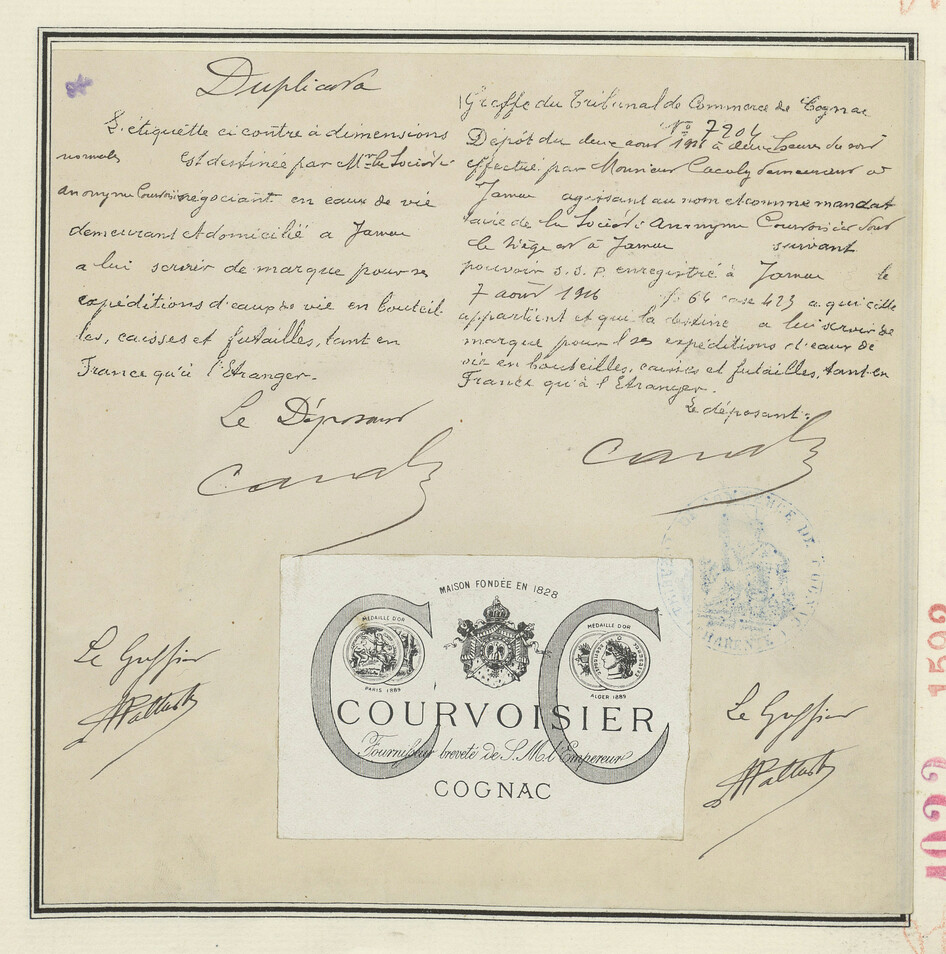 Duplicata
L'étiquette ci contre à dimensions
normales est destinée par Mr la Société
anonyme Courvoisier négociant en eaux de vie
demeurant et domicilié à Jarnac
a lui servir de marque pour ses
expéditions d'eaux de vie en bouteil-
les, caisses et futailles, tant en
France qu'à l'Etranger.
Le Déposant
Greffe du Tribunal de Commerce de Cognac
No 7204
Dépôt du deux aout 1916 à deux heures du soir
effectué par Monsieur demeurant à
Jarnac agissant au nom et comme mandat
taire de la Société Anonyme Courvoisier dont
le siège est à Jarnac suivant
pouvoir s.s.p. enregistré à Jarnac le
7 août 1916 fo 64 case 423 a qui cette
appartient et qui la destine a lui servir de
marque pour ses expéditions d'eaux de
vie en bouteilles, caisses et futailles, tant en
France qu'à l'Etranger.
Le déposant:
TRIBUNAL DE COMMERCE DE COGNAC
CHARENTE
MAISON FONDÉE EN 1828
MÉDAILLE D'OR
PARIS 1889
MÉDAILLE D'OR
ALGER 1889
C C
COURVOISIER
Fournisseur breveté de S.M. l'Empereur
COGNAC
Le Greffier
Le Greffier
1022 1592